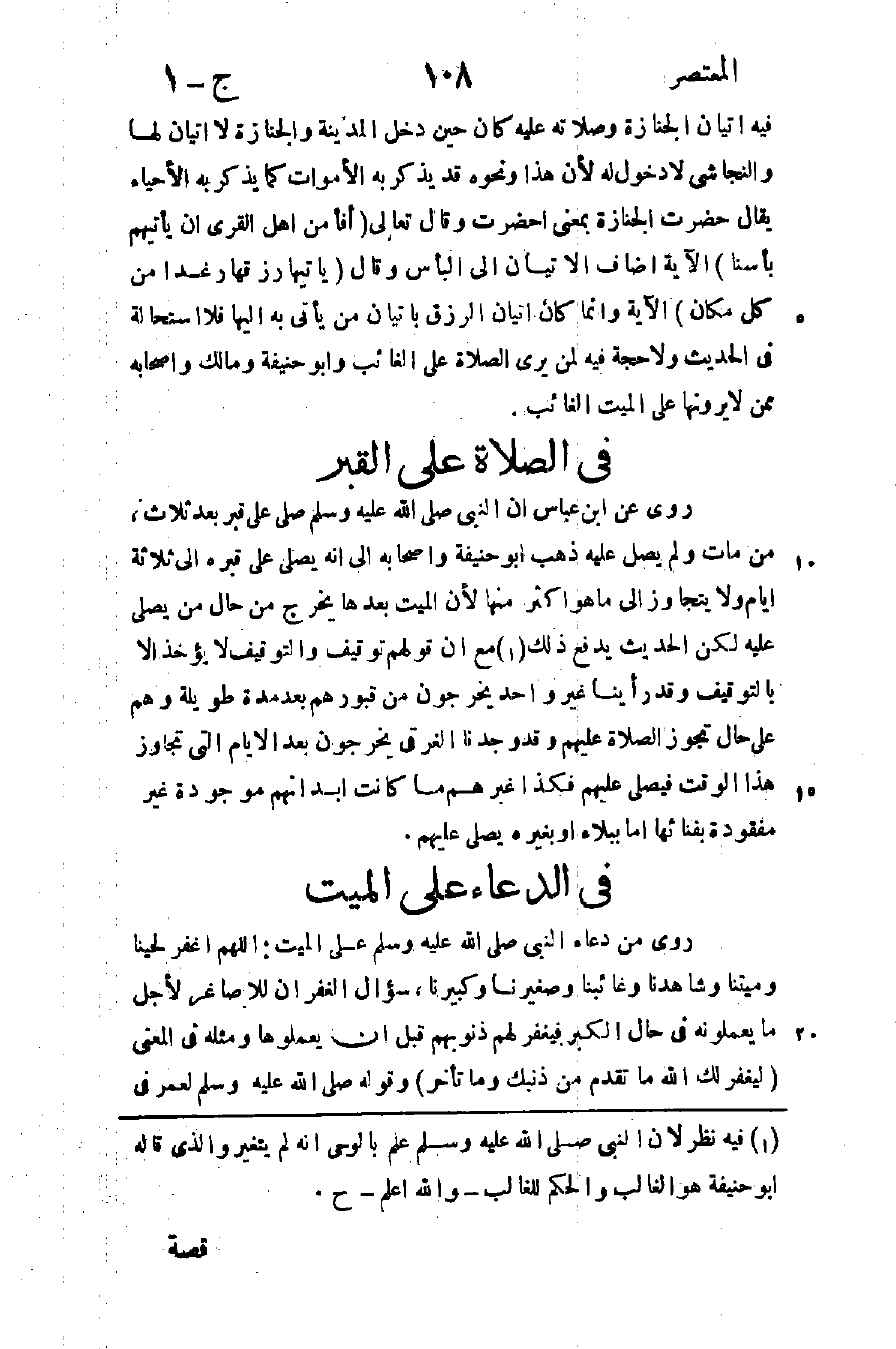 المعتصر ١٠٨ ج - ١
فيه اتيان الجنازة وصلاته عليه كان حين دخل المدينة والجنازة لا اتيان لهــا
والنجاشى لادخول له لأن هذا ونحوه قد يذكر به الأموات كما يذكر به الأحياء
يقال حضرت الجنازة بمعنى احضرت وقال تعالى ( أفأمن اهل القرى ان يأتيهم
بأسنا ) الآية اضاف الاتيــان الى البأس وقال ( ياتيها رزقها رغــدا من
كل مكان ) الآية وانما كان اتيان الرزق باتيان من يأتى به اليها فلا استحالة ٥
فى الحديث ولاحجة فيه لمن يرى الصلاة على الغائب وابو حنيفة ومالك واصحابه
ممن لايرونها على الميت الغائب .
فى الصلاة على القبر
روى عن ابن عباس ان النبى صلى الله عليه وسلم صلى على قبر بعد ثلاث ،
من مات ولم يصل عليه ذهب ابو حنيفة واصحابه الى انه يصلى على قبره الى ثلاثة ١٠
ايام ولا يتجاوز الى ماهو اكثر منها لأن الميت بعدها يخرج من حال من يصلى
عليه لكن الحديث يدفع ذلك (١) مع ان قولهم توقيف والتوقيف لا يؤخذ الا
بالتوقيف وقد رأينــا غير واحد يخرجون من قبورهم بعد مدة طويلة وهم
على حال تجوز الصلاة عليهم وقد وجدنا الغرقى يخرجون بعد الايام التى تجاوز
هذا الوقت فيصلى عليهم فكذا غيرهــم مــا كانت ابــدانهم موجودة غير ١٥
مفقودة بفنائها اما ببلاء او بغيره يصلى عليهم .
فى الدعاء على الميت
روى من دعاء النبى صلى الله عليه وسلم عــلى الميت : اللهم اغفر لحينا
وميتنا وشاهدنا وغائبنا وصغيرنــا وكبيرنا ، سؤال الغفران للاصاغر لأجل
ما يعملونه فى حال الكبر فيغفر لهم ذنوبهم قبل ان يعملوها ومثله فى المعنى ٢٠
( ليغفر لك الله ما تقدم من ذنبك وما تأخر ) وقوله صلى الله عليه وسلم لعمر فى
(١) فيه نظر لان النبى صــلى الله عليه وســلم علم بالوحى انه لم يتغير والذى قاله
ابو حنيفة هو الغالب والحكم للغالب - والله اعلم - ح .
قصة